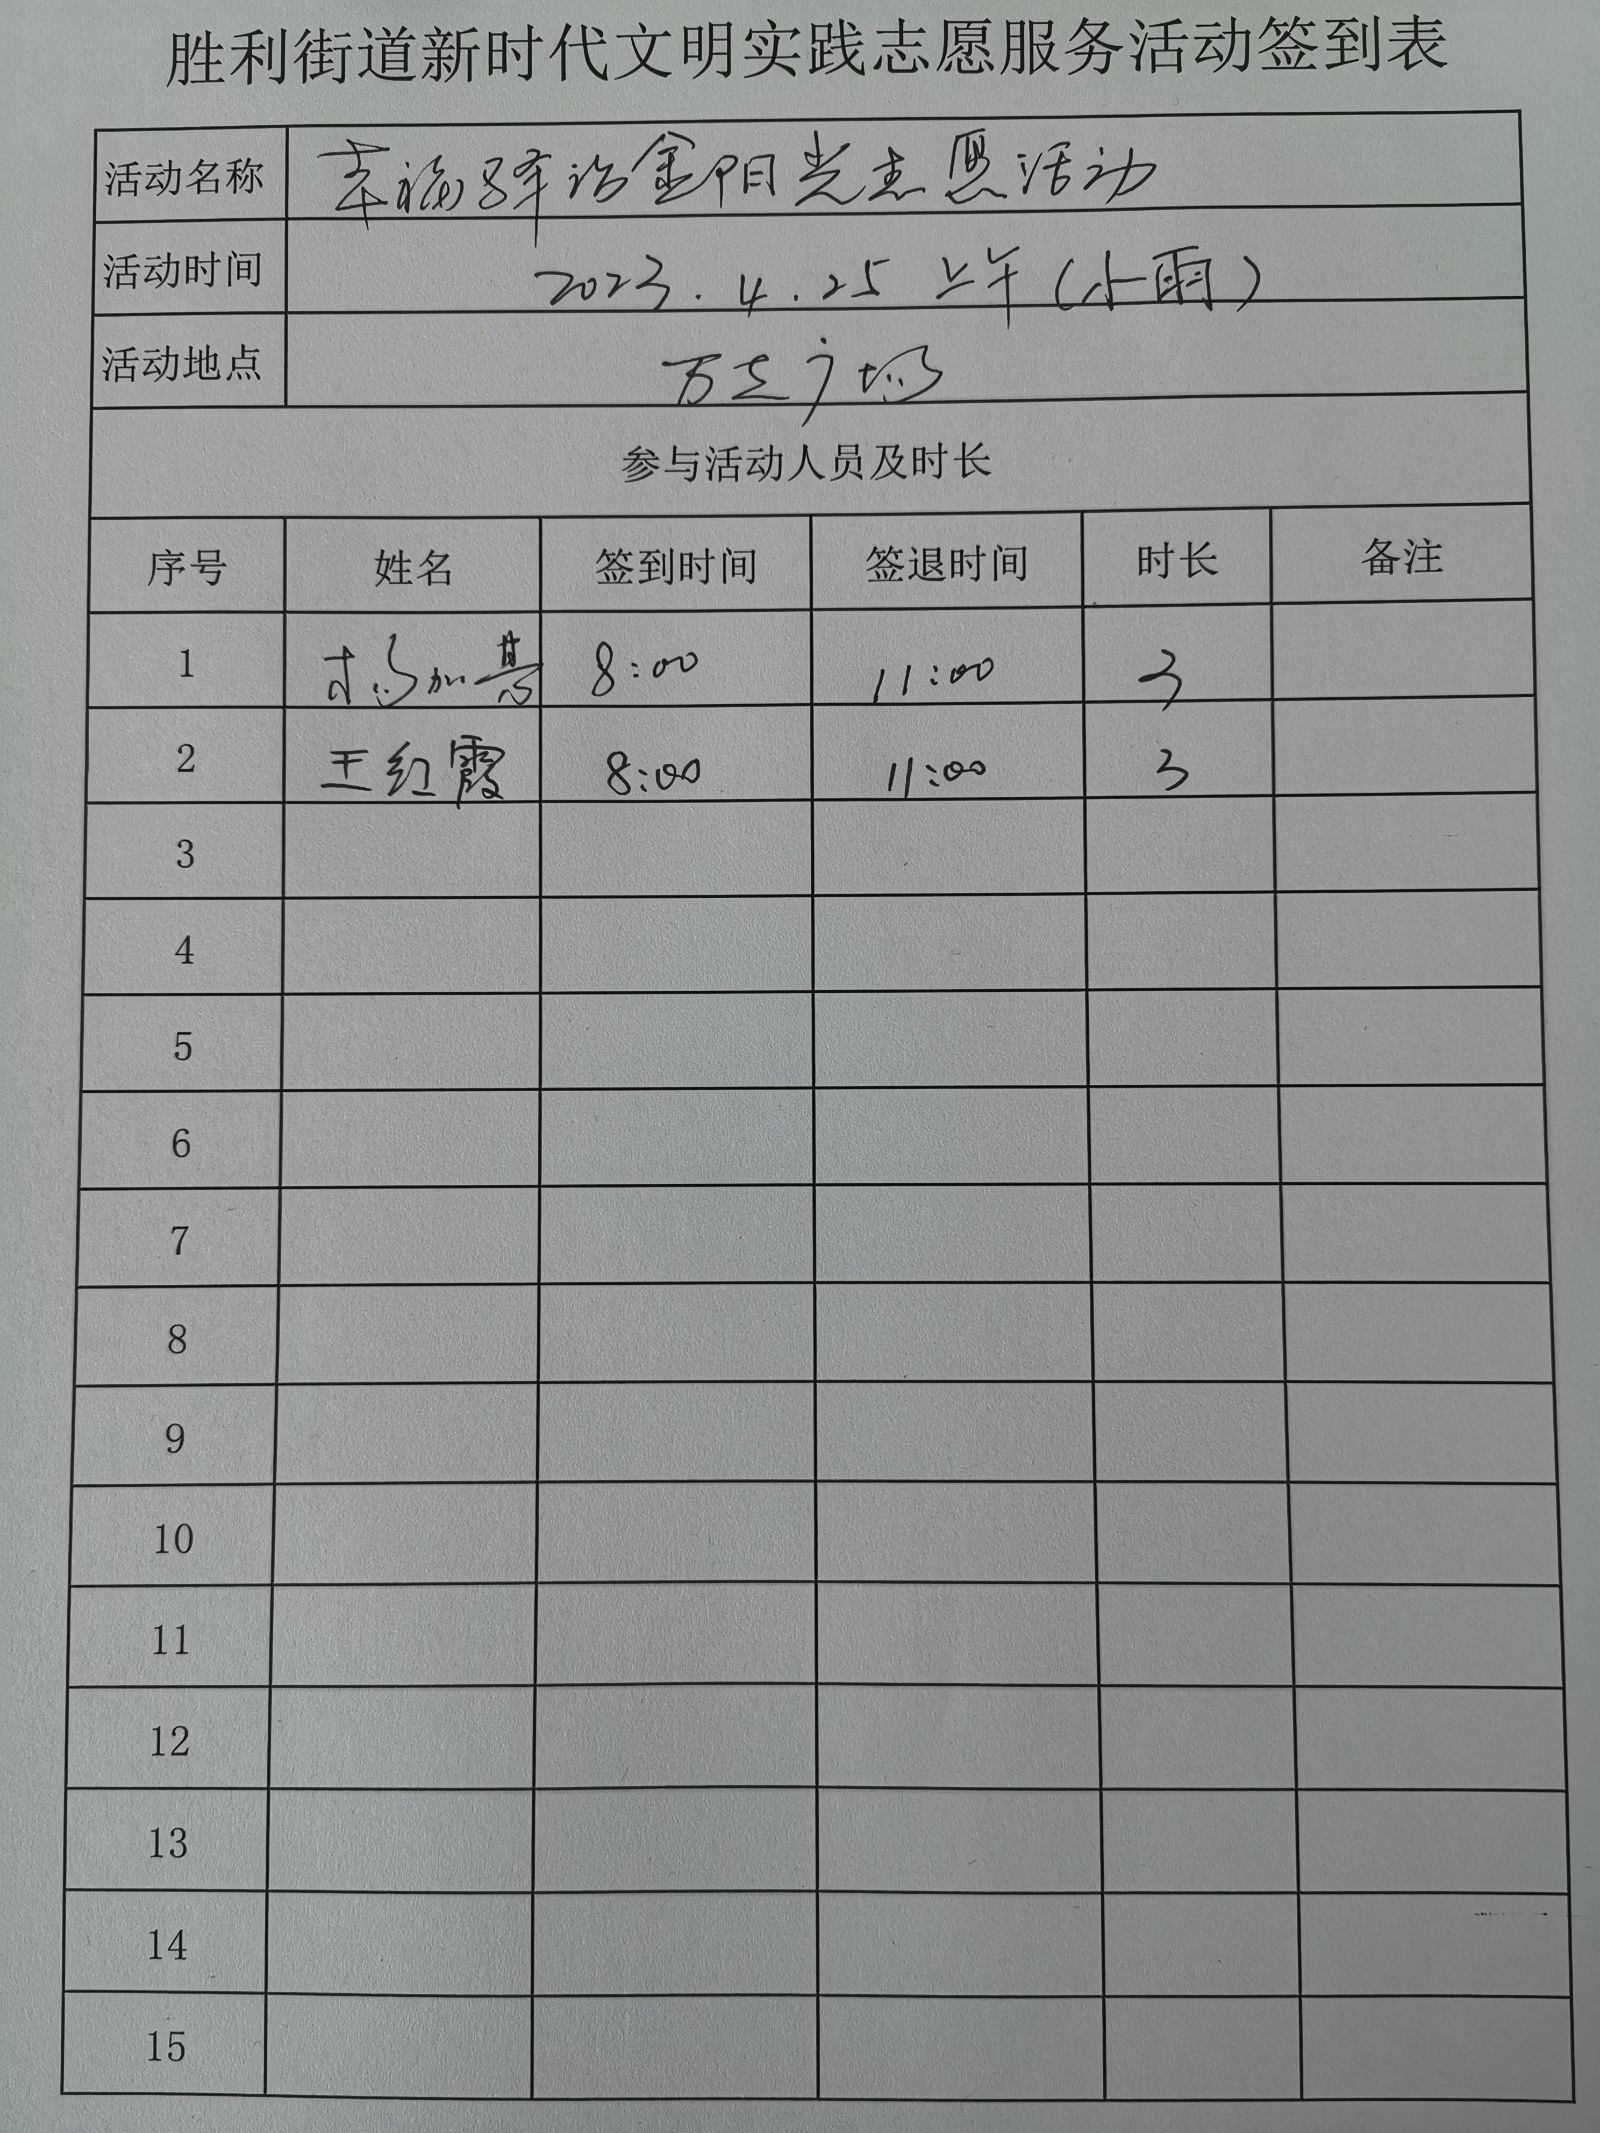 胜利街道新时代文明实践志愿服务活动签到表
活动名称 幸福驿站金阳光志愿活动
活动时间 2023.4.25 上午(小雨)
活动地点 万达广场
参与活动人员及时长
序号 姓名 签到时间 签退时间 时长 备注
1 8:00 11:00 3
2 王红霞 8:00 11:00 3
3
4
5
6
7
8
9
10
11
12
13
14
15